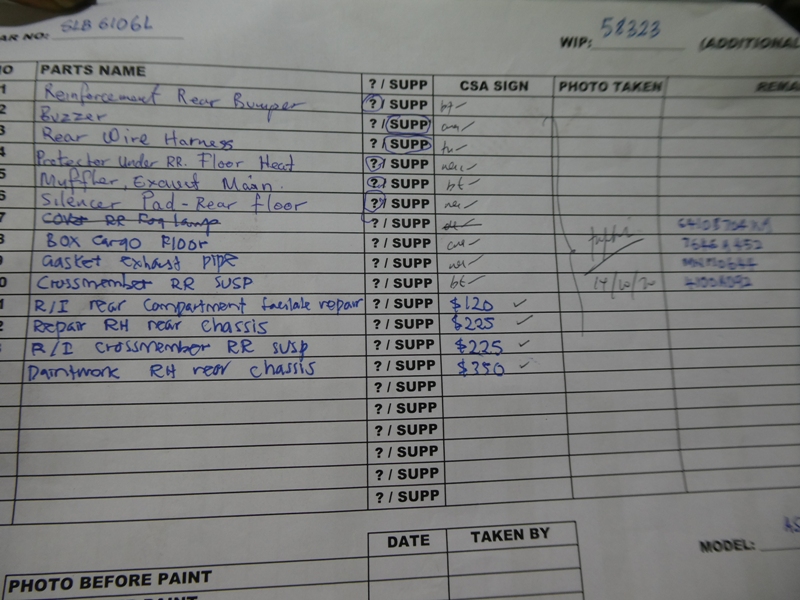 AR NO: SLB 6106L
WIP: 58323 (ADDITIONAL
O PARTS NAME ? / SUPP CSA SIGN PHOTO TAKEN REMA
1 Reinforcement Rear Bumper ? / SUPP
2 Buzzer ? / SUPP
3 Rear Wire Harness ? / SUPP
4 Protector Under RR. Floor Heat ? / SUPP
5 Muffler, Exaust Main. ? / SUPP bt
6 Silencer Pad - Rear floor ? / SUPP
7 Cover RR Fog lamp ? / SUPP
8 BOX Cargo Floor ? / SUPP
9 Gasket exhaust pipe ? / SUPP
0 Crossmember RR SUSP ? / SUPP bt 14/10/20
1 R/I rear compartment faciliate repair ? / SUPP $120
2 Repair RH rear chassis ? / SUPP $225
R/I crossmember RR susp ? / SUPP $225
Paintwork RH rear chassis ? / SUPP $350
? / SUPP
? / SUPP
? / SUPP
? / SUPP
? / SUPP
? / SUPP
DATE TAKEN BY
MODEL: AS
PHOTO BEFORE PAINT